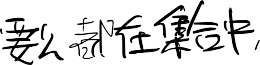 要么都在集合中,